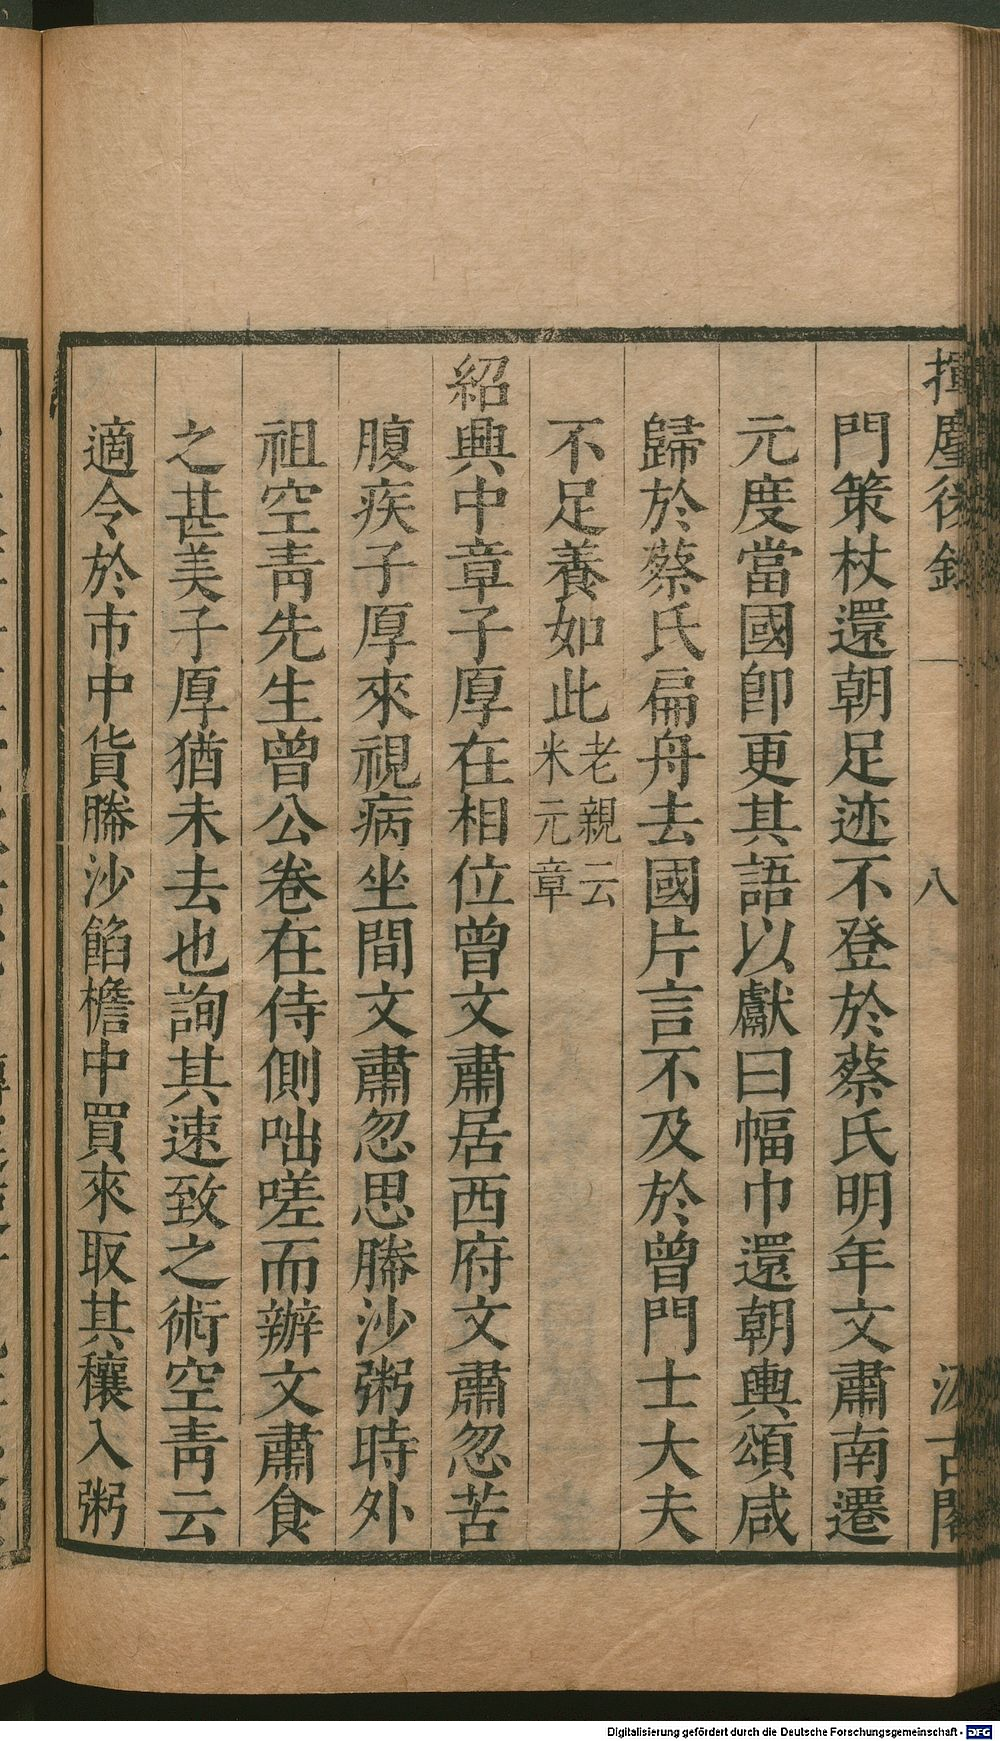 揮麈後錄 八 汲古閣
門策杖還朝足迹不登於蔡氏明年文肅南遷
元度當國卽更其語以獻曰幅巾還朝輿頌咸
歸於蔡氏扁舟去國片言不及於曾門士大夫
不足養如此老親云米元章
紹興中章子厚在相位曾文肅居西府文肅忽苦
腹疾子厚來視病坐間文肅忽思䐁沙粥時外
祖空靑先生曾公卷在侍側咄嗟而辦文肅食
之甚美子厚猶未去也詢其速致之術空靑云
適令於市中貨䐁沙餡檐中買來取其穰入粥
Digitalisierung gefördert durch die Deutsche Forschungsgemeinschaft - DFG